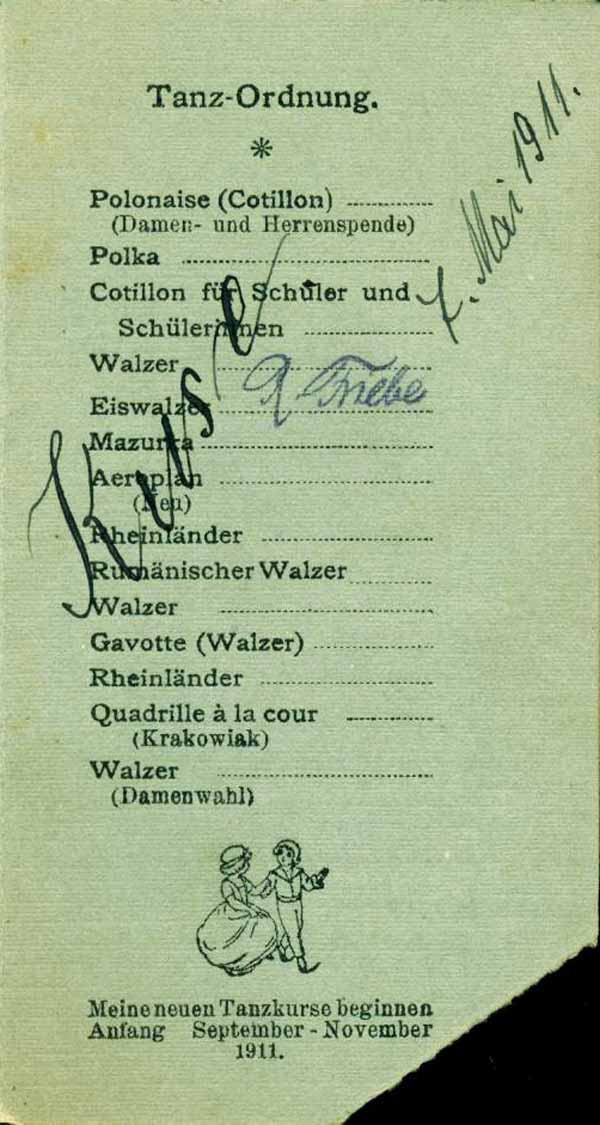 Tanz-Ordnung.
7. Mai 1911.
Polonaise (Cotillon)
(Damen- und Herrenspende)
Polka
Cotillon für Schüler und
Schülerinnen
Walzer
Eiswalzer
Mazurka
Aeroplan
(Neu)
Rheinländer
Rumänischer Walzer
Walzer
Gavotte (Walzer)
Rheinländer
Quadrille à la cour
(Krakowiak)
Walzer
(Damenwahl)
Meine neuen Tanzkurse beginnen
Anfang September - November
1911.